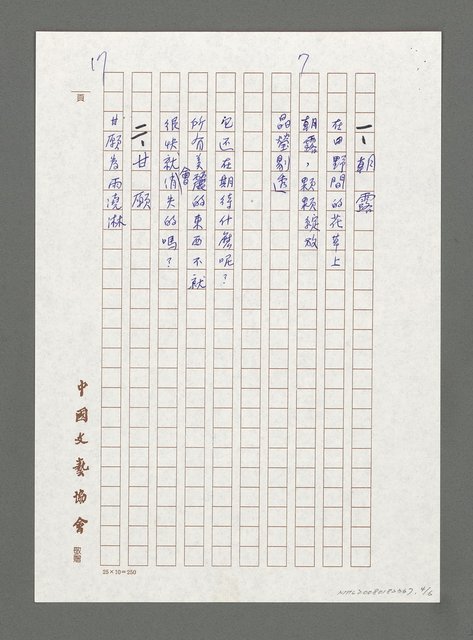 7
一、朝露
在田野間的花草上
朝露，顆顆綻放
晶瑩剔透
它还在期待什麼呢？
所有美麗的東西不就
會
很快就消失的嗎？
二、甘願
甘願為雨澆淋
17
頁
中國文藝協會
敬贈
25×10=250